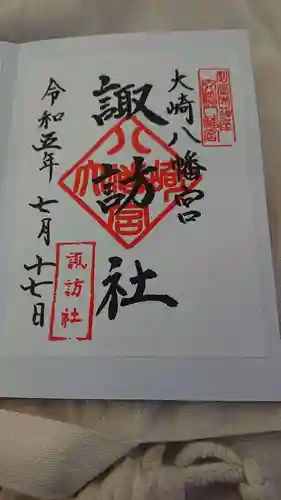 大崎八幡宮
諏訪社
令和五年 七月十七日
諏訪社